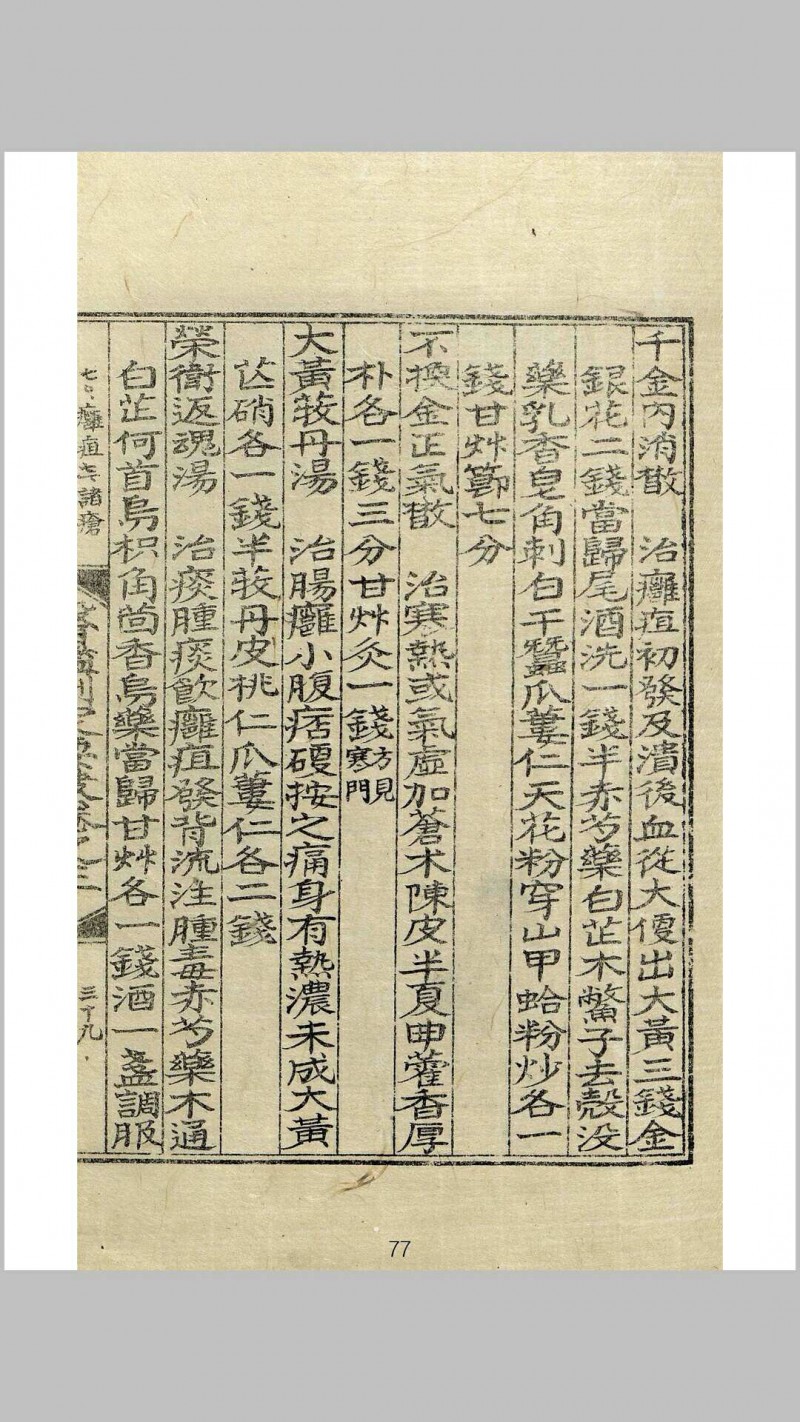 千金內消散　治癰疽初發及潰後血從大便出大黃三錢金
銀花二錢當歸尾酒洗一錢半赤芍藥白芷木鱉子去殼没
藥乳香皂角刺白干蠶瓜蔞仁天花粉穿山甲蛤粉炒各一
錢甘艸節七分
不換金正氣散　治寒熱或氣虛加蒼朮陳皮半夏曲藿香厚
朴各一錢三分甘艸灸一錢方見寒門
大黃牧丹湯　治腸癰小腹痞硬按之痛身有熱濃未成大黃
芒硝各一錢半牧丹皮桃仁瓜蔞仁各二錢
榮衛返魂湯　治痰腫痰飮癰疽發背流注腫毒赤芍藥木通
白芷何首烏枳角茴香烏藥當歸甘艸各一錢酒一盞調服
癰疽 諸瘡
三十九
77